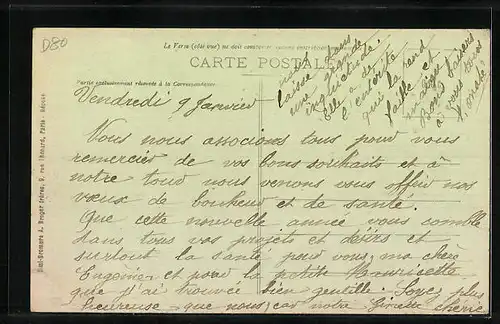 D80
Le Verso (côté vue) ne doit
CARTE POSTALE
Partie exclusivement réservée à la Correspondance.
Vendredi 9 Janvier
Vous nous associons tous pour vous
remercier de vos bons souhaits et à
notre tour nous venons vous offrir nos
vœux de bonheur et de santé.
Que cette nouvelle année vous comble
dans tous vos projets et désirs et
surtout la santé pour vous, ma chère
et pour la petite Mauricette
que j'ai trouvée bien gentille. Soyez plus
heureuse que nous, car notre Ginette chérie
nous
laisse dans
une grande
inquiétude.
Elle a de
l'entérite
qui la rend
faible et
Bons baisers
à vous tous
Simi-Bromure A. Breger frères, 9, rue Thénard, Paris